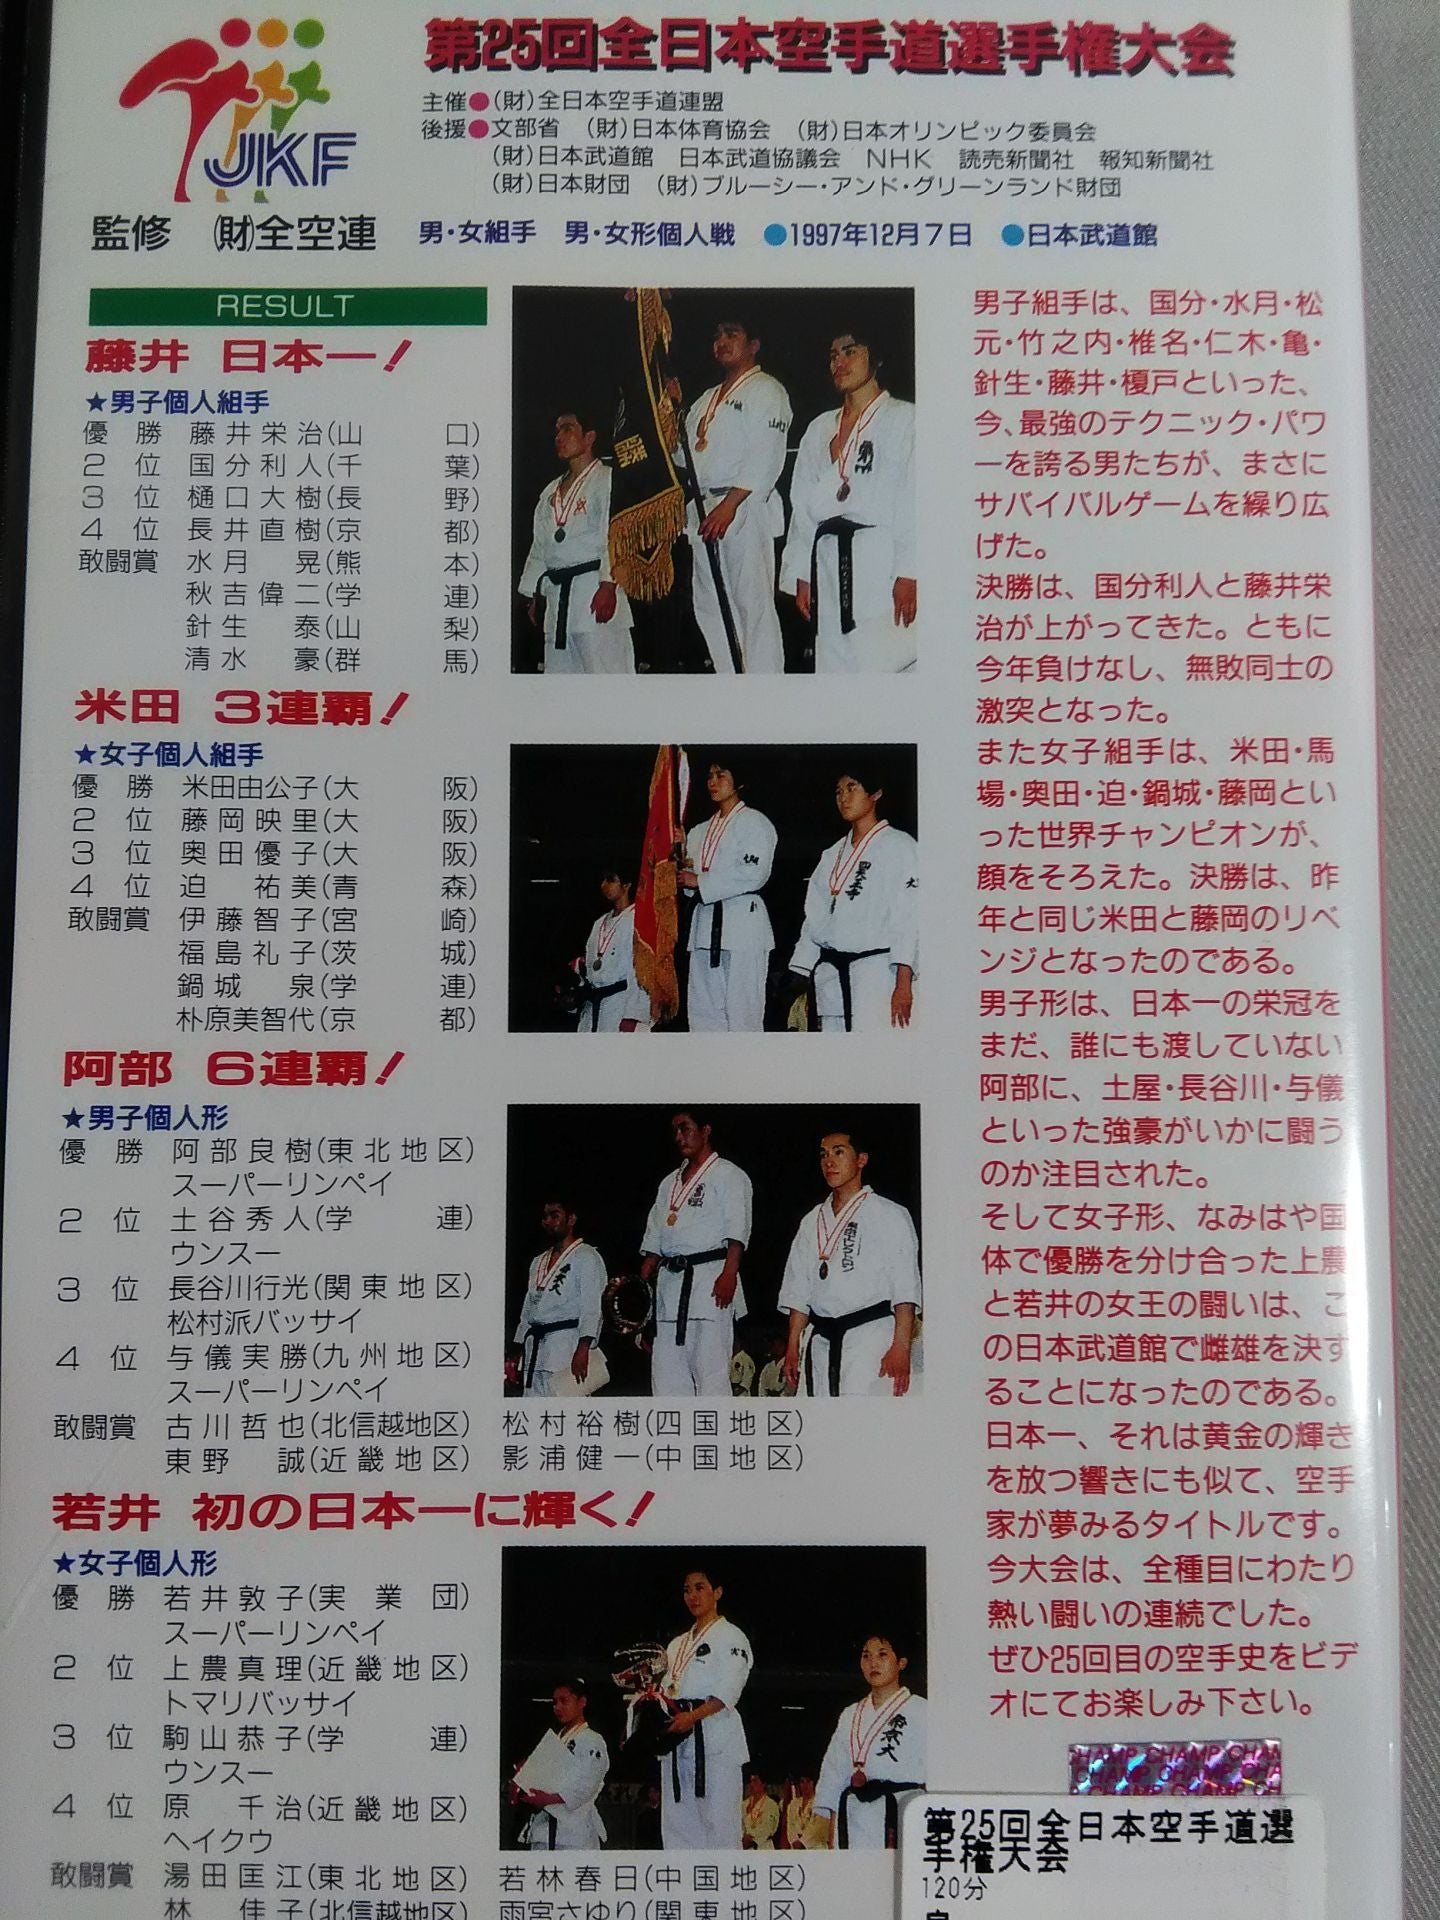 JKF
監修 (財)全空連
第25回全日本空手道選手権大会
主催●(財)全日本空手道連盟
後援●文部省 (財)日本体育協会 (財)日本オリンピック委員会
(財)日本武道館 日本武道協議会 NHK 読売新聞社 報知新聞社
(財)日本財団 (財)ブルーシー・アンド・グリーンランド財団
男・女組手 男・女形個人戦 ●1997年12月7日 ●日本武道館
RESULT
藤井 日本一!
★男子個人組手
優勝 藤井栄治(山口)
2位 国分利人(千葉)
3位 樋口大樹(長野)
4位 長井直樹(京都)
敢闘賞 水月晃(熊本)
秋吉偉二(学連)
針生泰(山梨)
清水豪(群馬)
米田 3連覇!
★女子個人組手
優勝 米田由公子(大阪)
2位 藤岡映里(大阪)
3位 奥田優子(大阪)
4位 迫祐美(青森)
敢闘賞 伊藤智子(宮崎)
福島礼子(茨城)
鍋城泉(学連)
朴原美智代(京都)
阿部 6連覇!
★男子個人形
優勝 阿部良樹(東北地区)
スーパーリンペイ
2位 土谷秀人(学連)
ウンスー
3位 長谷川行光(関東地区)
松村派バッサイ
4位 与儀実勝(九州地区)
スーパーリンペイ
敢闘賞 古川哲也(北信越地区) 松村裕樹(四国地区)
東野誠(近畿地区) 影浦健一(中国地区)
若井 初の日本一に輝く!
★女子個人形
優勝 若井敦子(実業団)
スーパーリンペイ
2位 上農真理(近畿地区)
トマリバッサイ
3位 駒山恭子(学連)
ウンスー
4位 原千治(近畿地区)
ヘイクウ
敢闘賞 湯田匡江(東北地区) 若林春日(中国地区)
林佳子(北信越地区) 雨宮さゆり(関東地区)
男子組手は、国分・水月・松
元・竹之内・椎名・仁木・亀・
針生・藤井・榎戸といった、
今、最強のテクニック・パワ
ーを誇る男たちが、まさに
サバイバルゲームを繰り広
げた。
決勝は、国分利人と藤井栄
治が上がってきた。ともに
今年負けなし、無敗同士の
激突となった。
また女子組手は、米田・馬
場・奥田・迫・鍋城・藤岡とい
った世界チャンピオンが、
顔をそろえた。決勝は、昨
年と同じ米田と藤岡のリベ
ンジとなったのである。
男子形は、日本一の栄冠を
まだ、誰にも渡していない
阿部に、土屋・長谷川・与儀
といった強豪がいかに闘う
のか注目された。
そして女子形、なみはや国
体で優勝を分け合った上農
と若井の女王の闘いは、こ
の日本武道館で雌雄を決す
ることになったのである。
日本一、それは黄金の輝き
を放つ響きにも似て、空手
家が夢みるタイトルです。
今大会は、全種目にわたり
熱い闘いの連続でした。
ぜひ25回目の空手史をビデ
オにてお楽しみ下さい。
CHAMP CHAMP CHAMP
CHAMP CHAMP CHAMP
第25回全日本空手道選
手権大会
120分